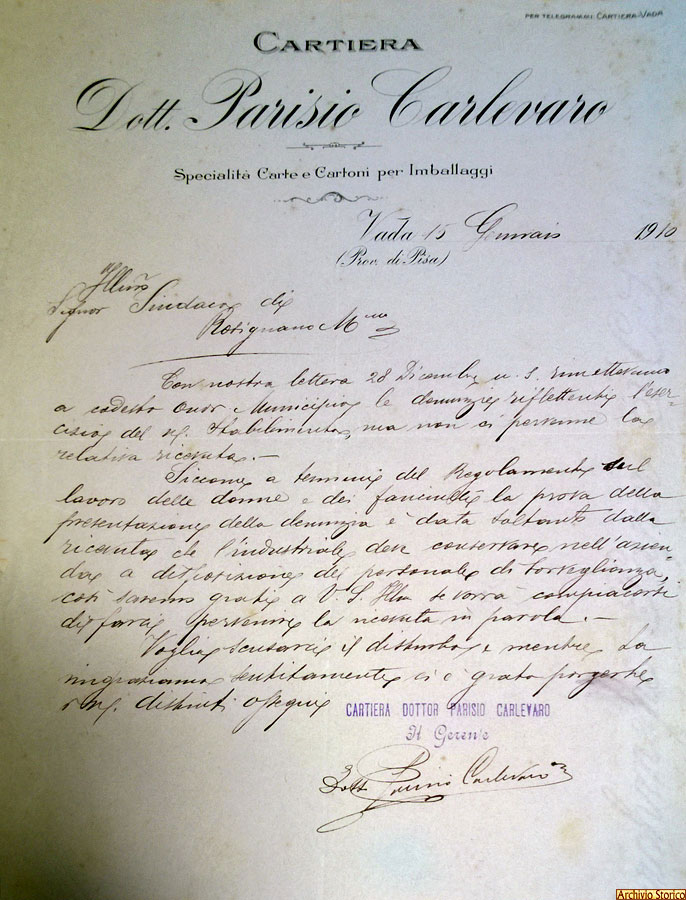 PER TELEGRAMMI: CARTIERA-VADA
CARTIERA
Dott. Parisio Carlevaro
Specialità Carte e Cartoni per Imballaggi
Vada 15 Gennaio 1910
(Prov. di Pisa)
Ill.mo
Signor Sindaco di
Rosignano M.mo
Con nostra lettera 28 Dicembre u. s. rimettevamo
a codesto onor. Municipio le denunzie riflettenti l'eser-
cizio del ns. stabilimento, ma non ci pervenne la
relativa ricevuta.-
Siccome a termini del Regolamento sul
lavoro delle donne e dei fanciulli la prova della
presentazione della denunzia è data soltanto dalla
ricevuta che l'industriale deve conservare nell'azien-
da a disposizione del personale di sorveglianza,
così saremo grati a V. S. Ill.ma se vorrà compiacersi
di farci pervenire la ricevuta in parola.-
Voglia scusarci il disturbo e mentre La
ringraziamo sentitamente ci è grato porgerle
i ns. distinti ossequi
CARTIERA DOTTOR PARISIO CARLEVARO
Il Gerente
Dott Parisio Carlevaro
Archivio Storico